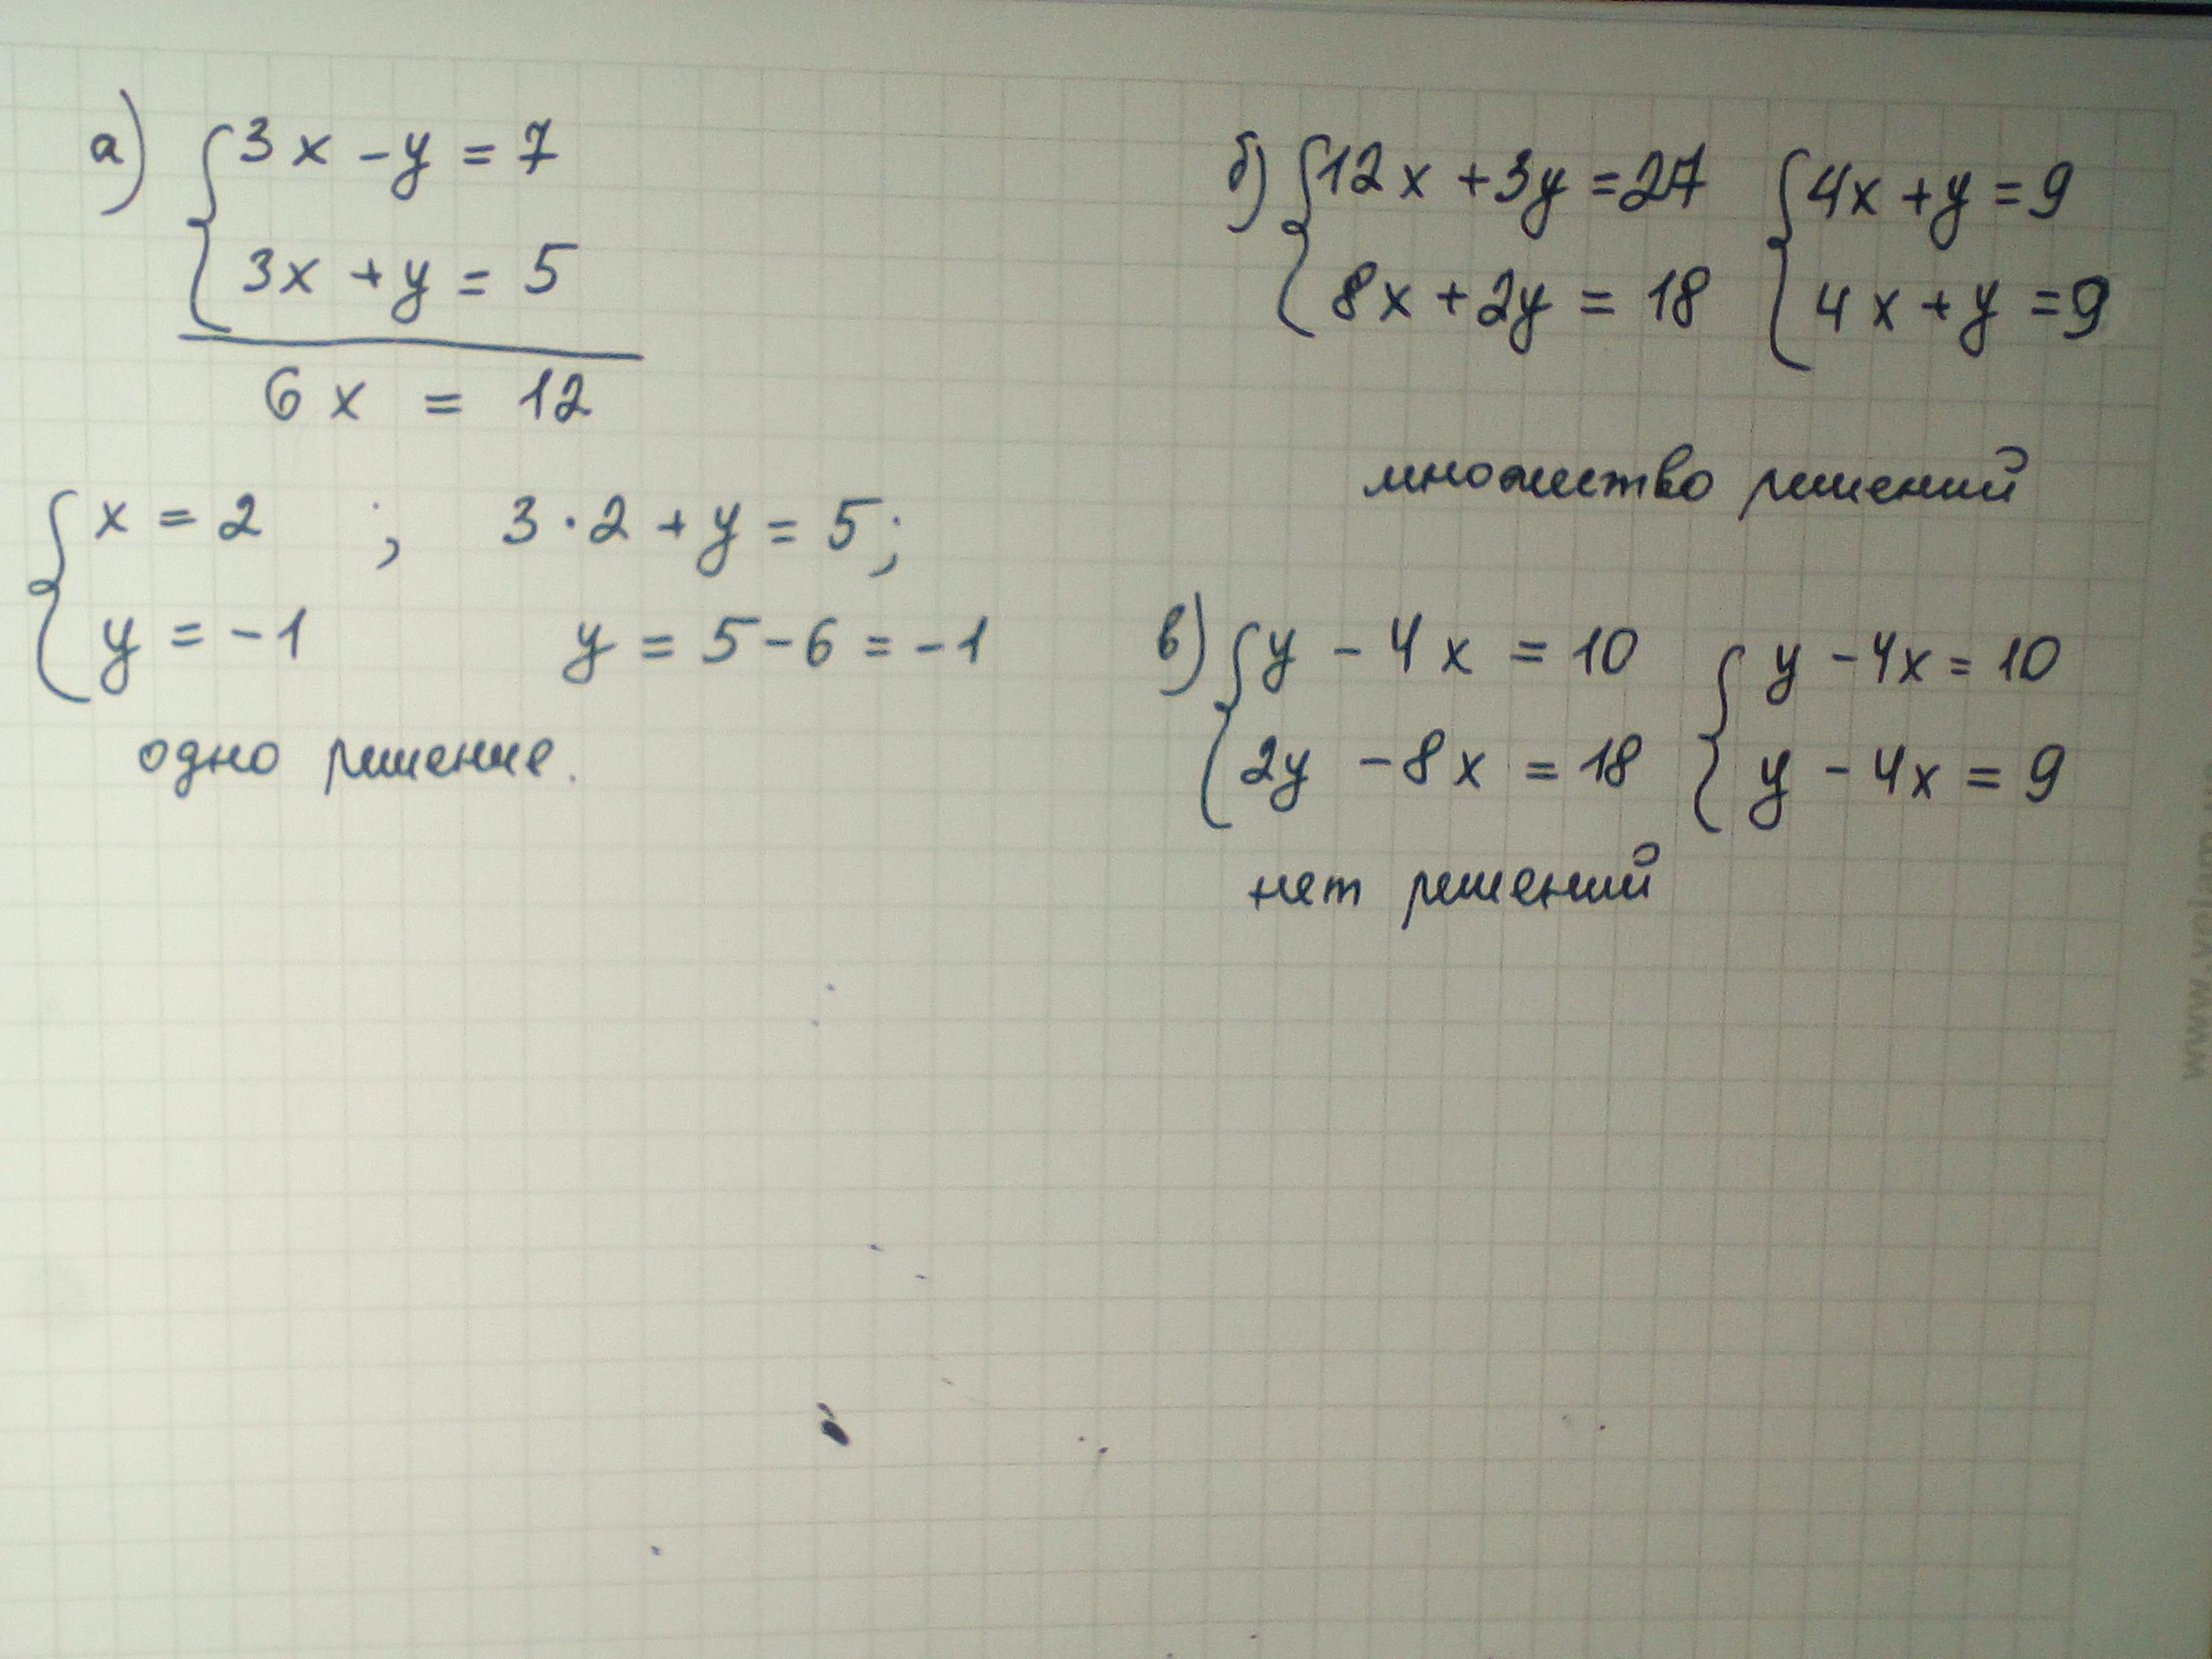 а) { 3x - y = 7
3x + y = 5
6x = 12
{ x = 2 ; 3 · 2 + y = 5;
y = -1 y = 5 - 6 = -1
одно решение.
б) { 12x + 3y = 27 { 4x + y = 9
8x + 2y = 18 4x + y = 9
множество решений
в) { y - 4x = 10 { y - 4x = 10
2y - 8x = 18 y - 4x = 9
нет решений